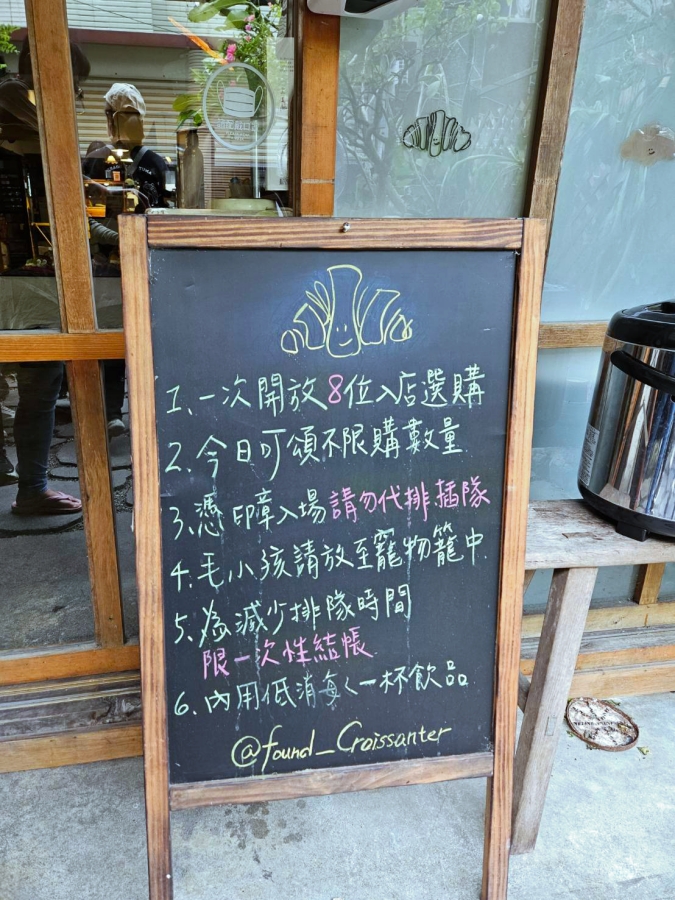 1、一次開放8位入店選購
2、今日可頌不限購數量
3、憑印章入場請勿代排插隊
4、毛小孩請放至寵物籠中
5、為減少排隊時間
限一次性結帳
6、內用低消每人一杯飲品
@found_Croissanter